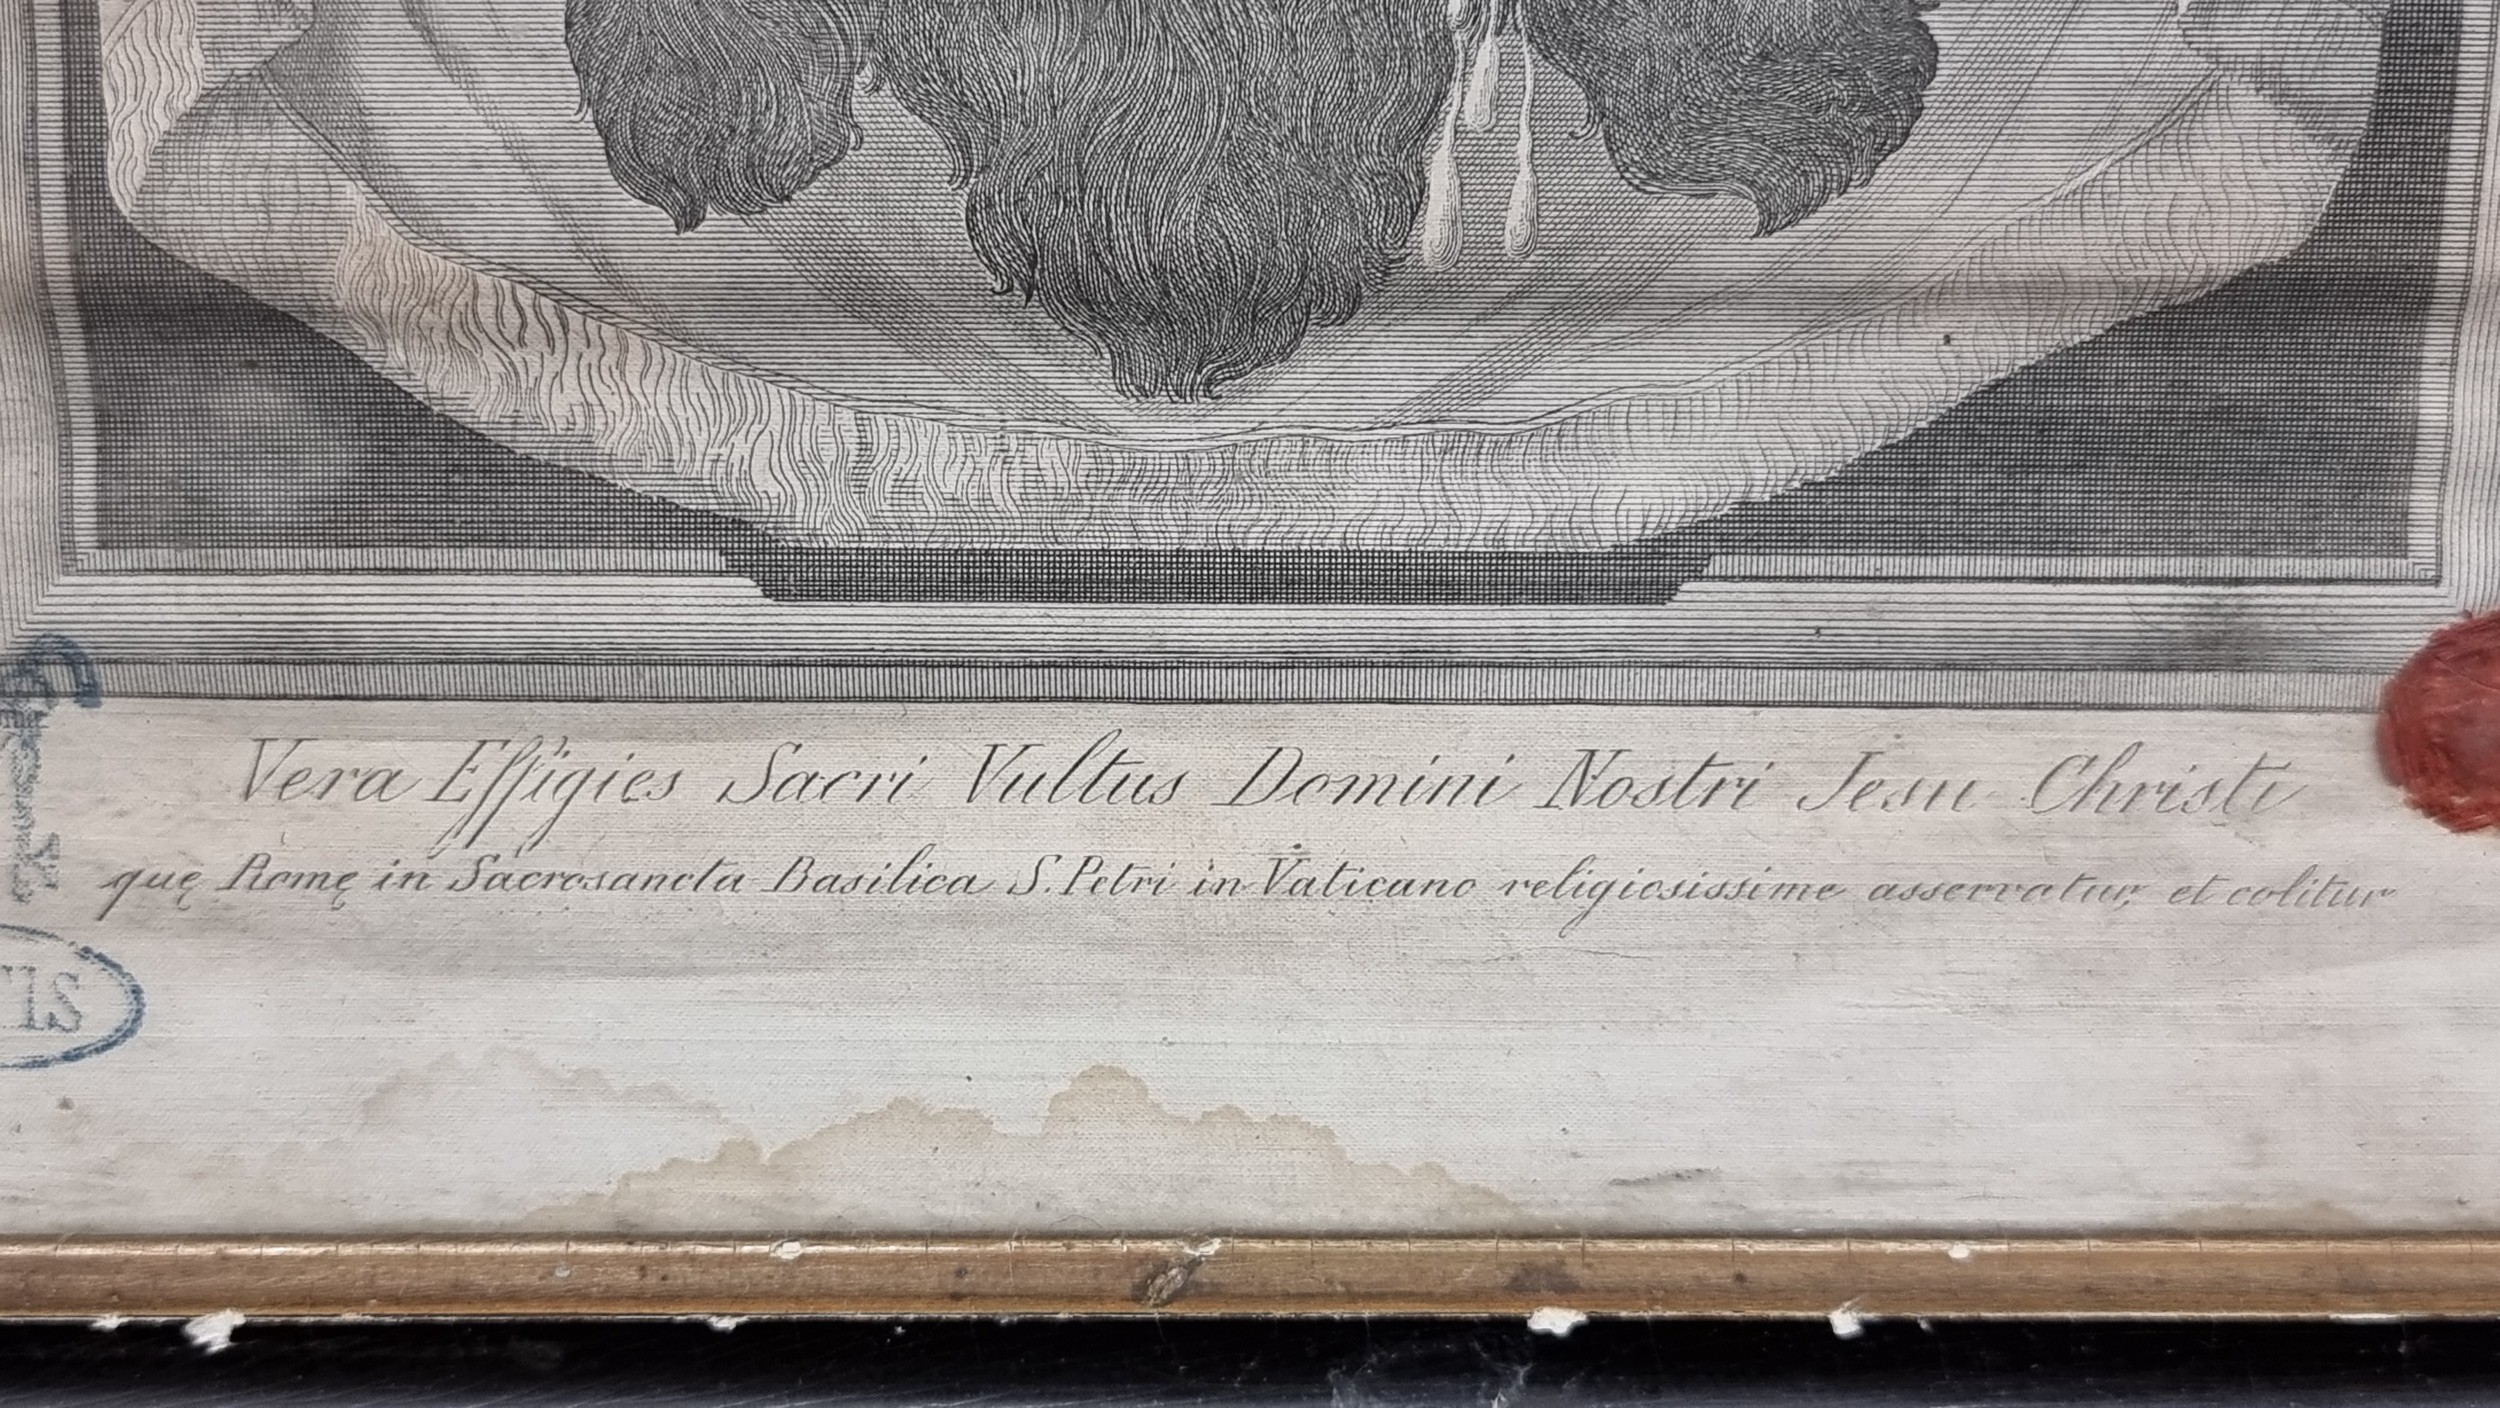 Vera Effigies Sacri Vultus Domini Nostri Jesu Christi
quę Romę in Sacrosancta Basilica S. Petri in Vaticano religiosissime asservatur, et colitur